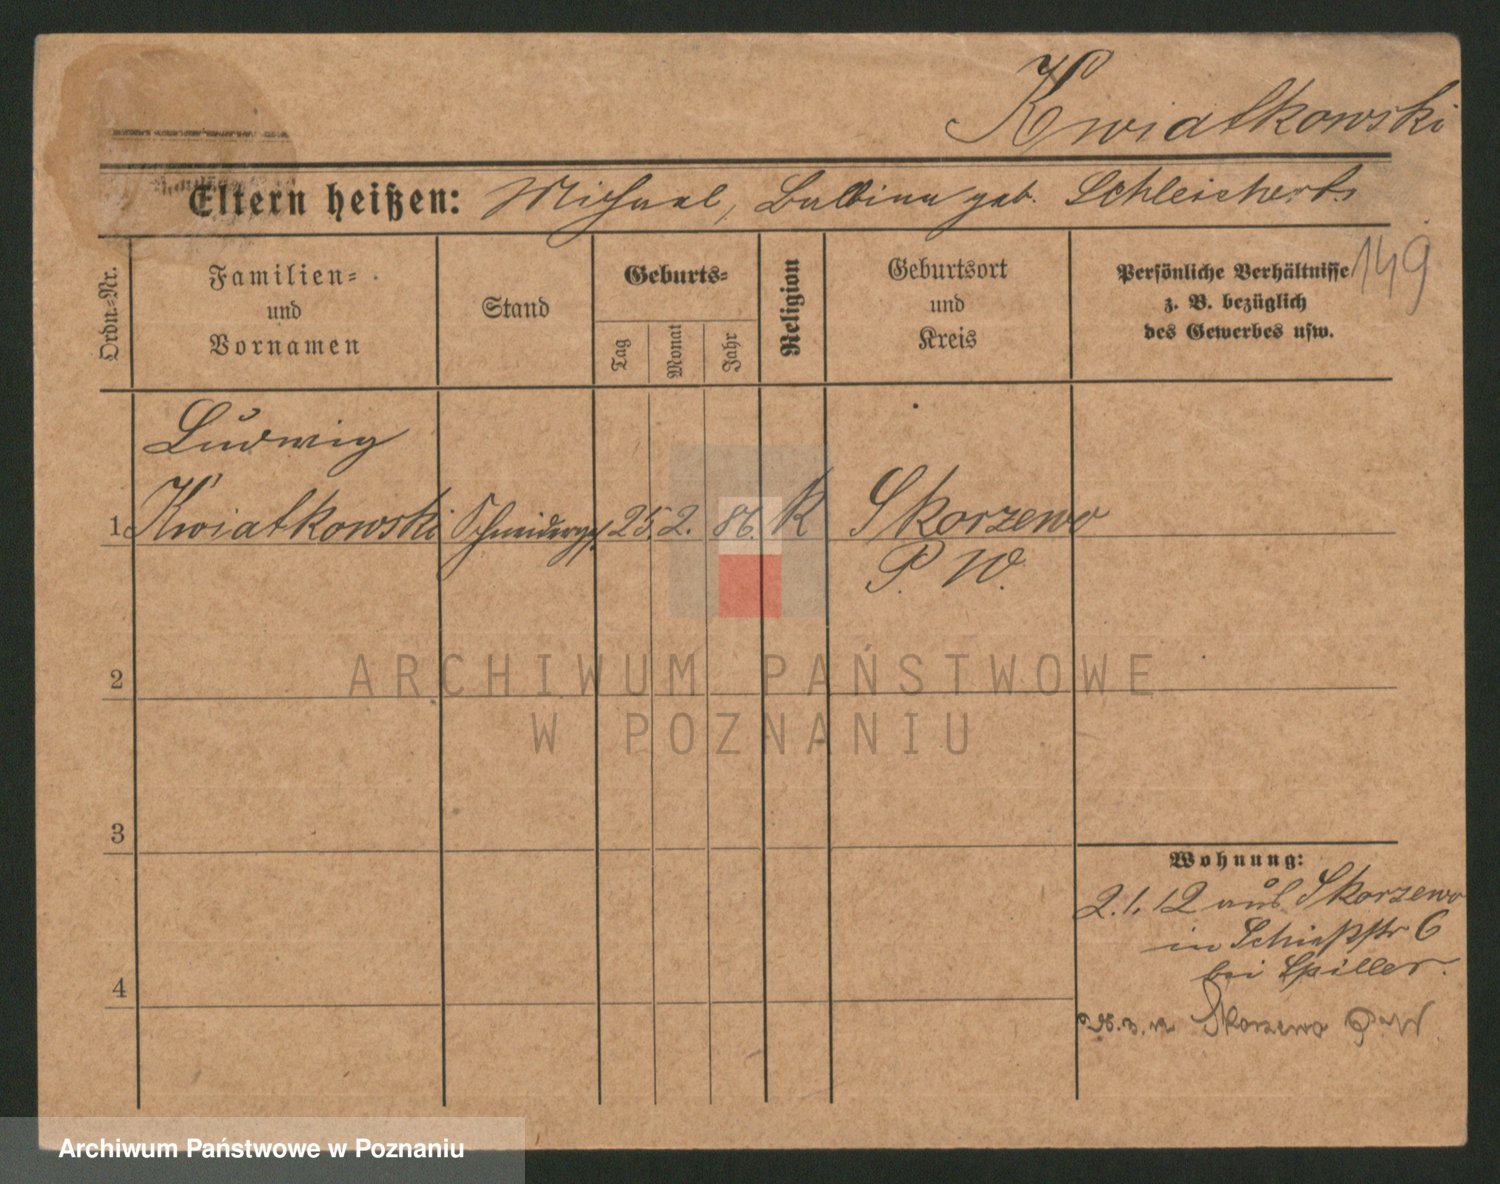 Kwiatkowski
Eltern heißen: Michael, Balbina geb. Schleichert
149
Ordn.-Nr.
Familien-
und
Vornamen
Stand
Geburts-
Tag
Monat
Jahr
Religion
Geburtsort
und
Kreis
Persönliche Verhältnisse
z. B. bezüglich
des Gewerbes usw.
Ludwig
1 Kwiatkowski Schneiderges. 25. 2. 86. K Skorzewo
P. W.
2
ARCHIWUM PAŃSTWOWE
W POZNANIU
3
Wohnung:
2.1.12 aus Skorzewo
in Schießstr 6
bei Spiller.
4
Skorzewo P W
Archiwum Państwowe w Poznaniu